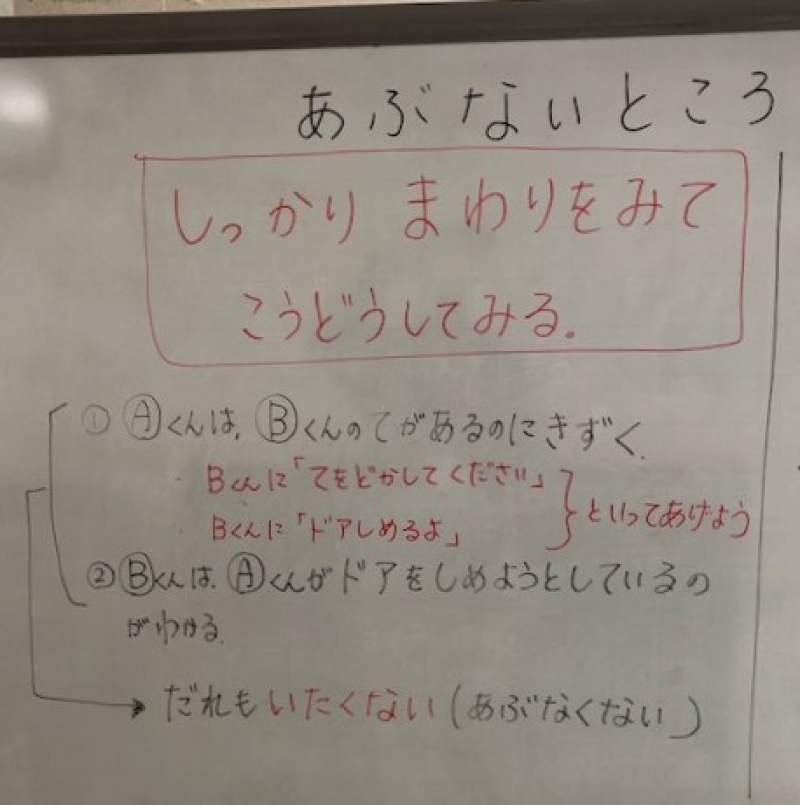 あぶないところ
しっかり まわりをみて
こうどうしてみる.
① Ⓐくんは, Ⓑくんのてがあるのにきずく.
・Bくんに「てをどかしてください」
・Bくんに「ドアしめるよ」
} といってあげよう
② Ⓑくんは, Ⓐくんがドアをしめようとしているの
がわかる.
→ だれもいたくない (あぶなくない)